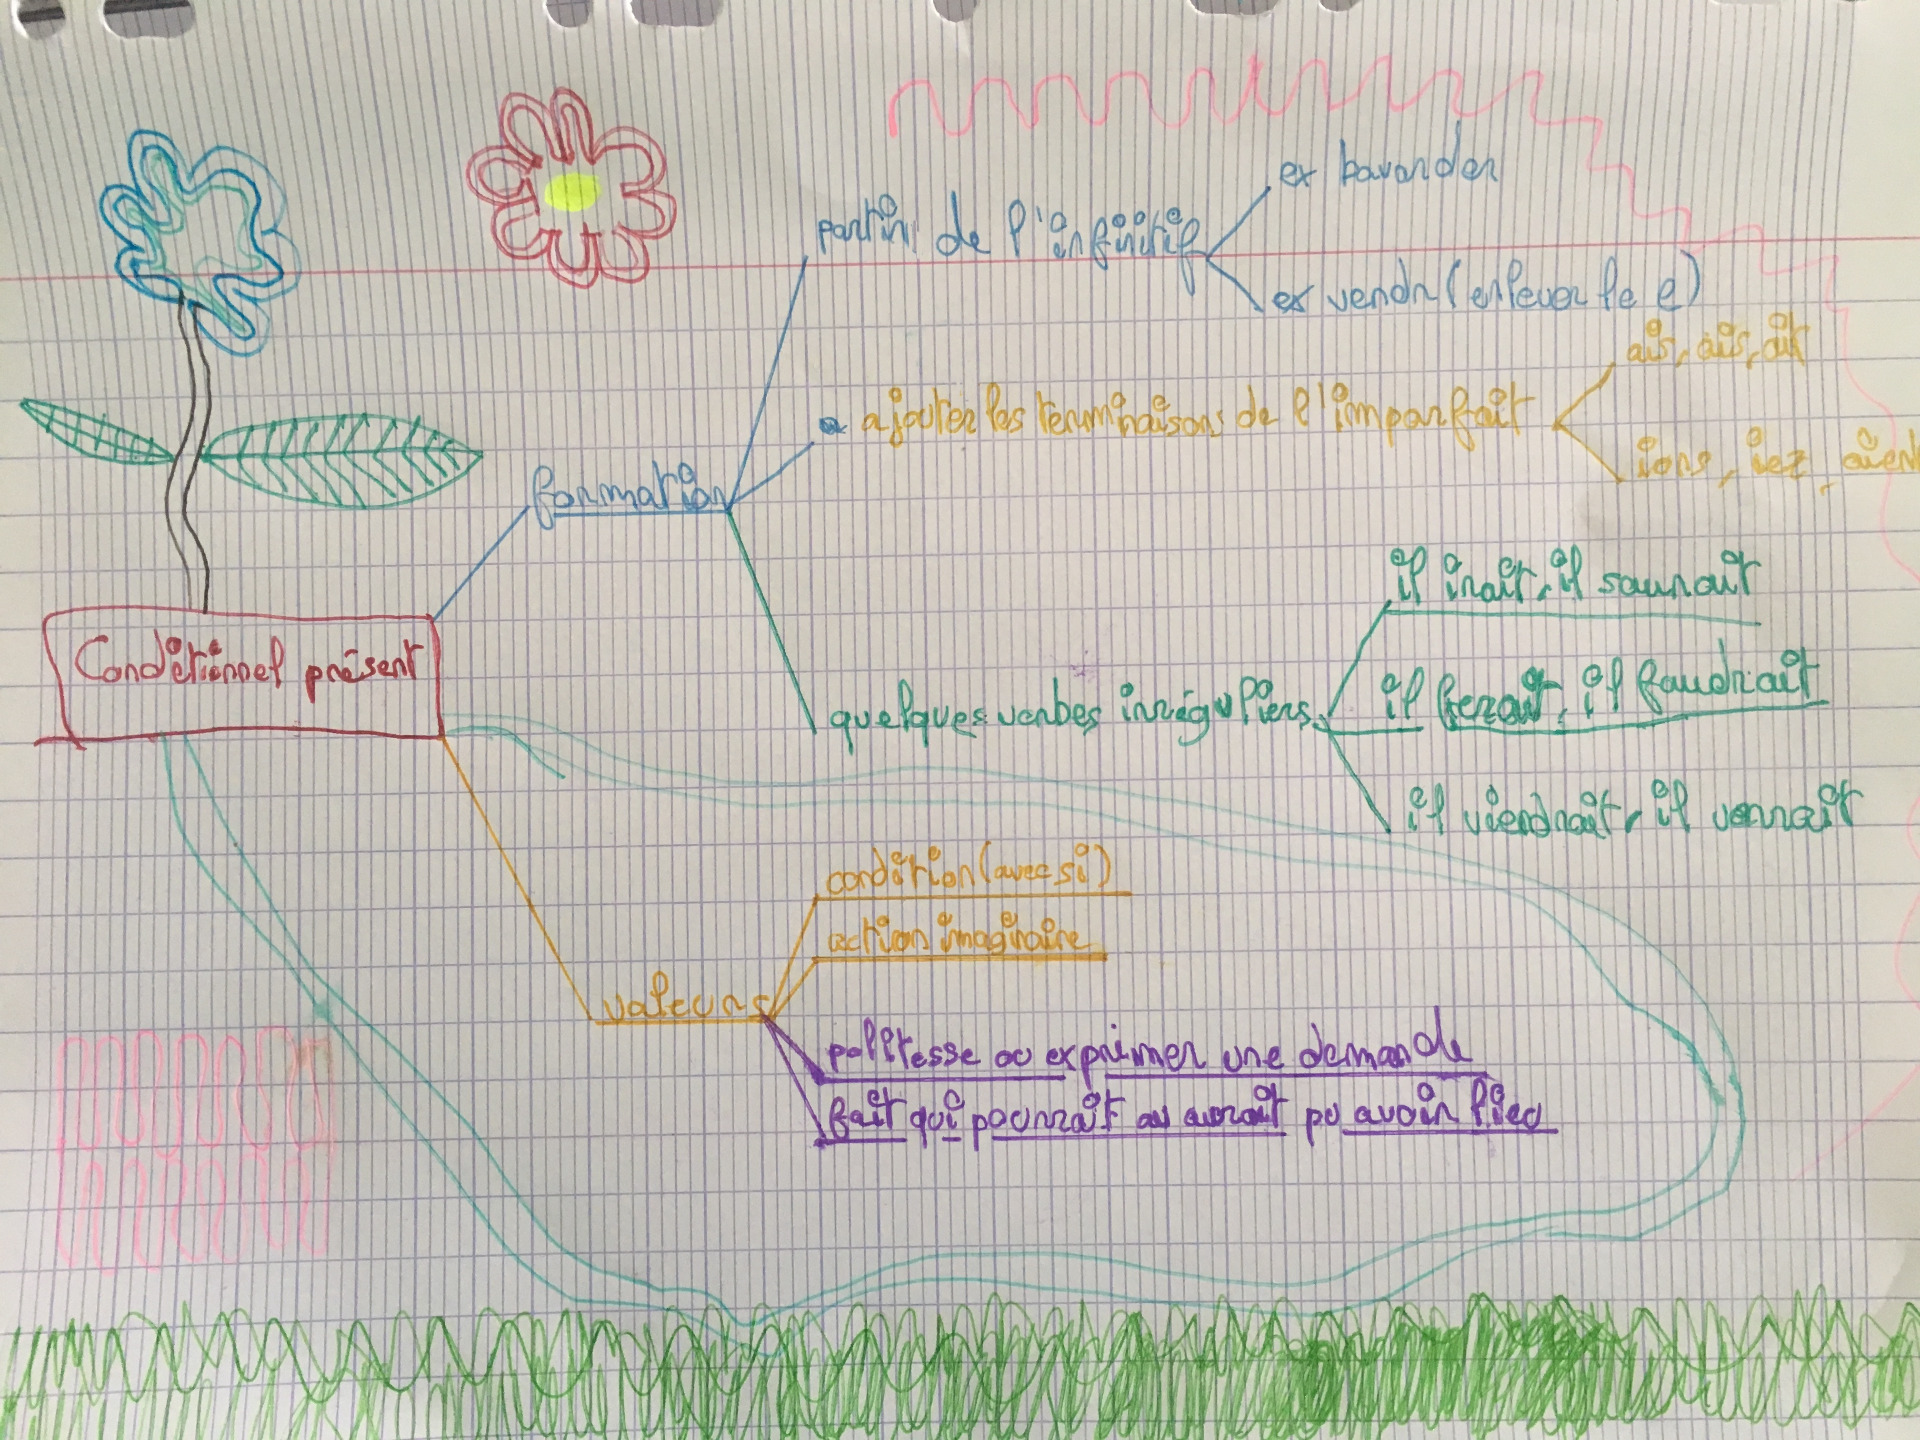 ex bavarder
partir de l'infinitif
ex vendr (enlever le e)
ais, ais, ait
ajouter les terminaisons de l'imparfait
ions, iez, aient
formation
il irait, il saurait
Conditionnel présent
il ferait, il faudrait
quelques verbes irréguliers
il viendrait, il verrait
condition (avec si)
action imaginaire
valeurs
politesse ou exprimer une demande
fait qui pourrait ou aurait pu avoir lieu